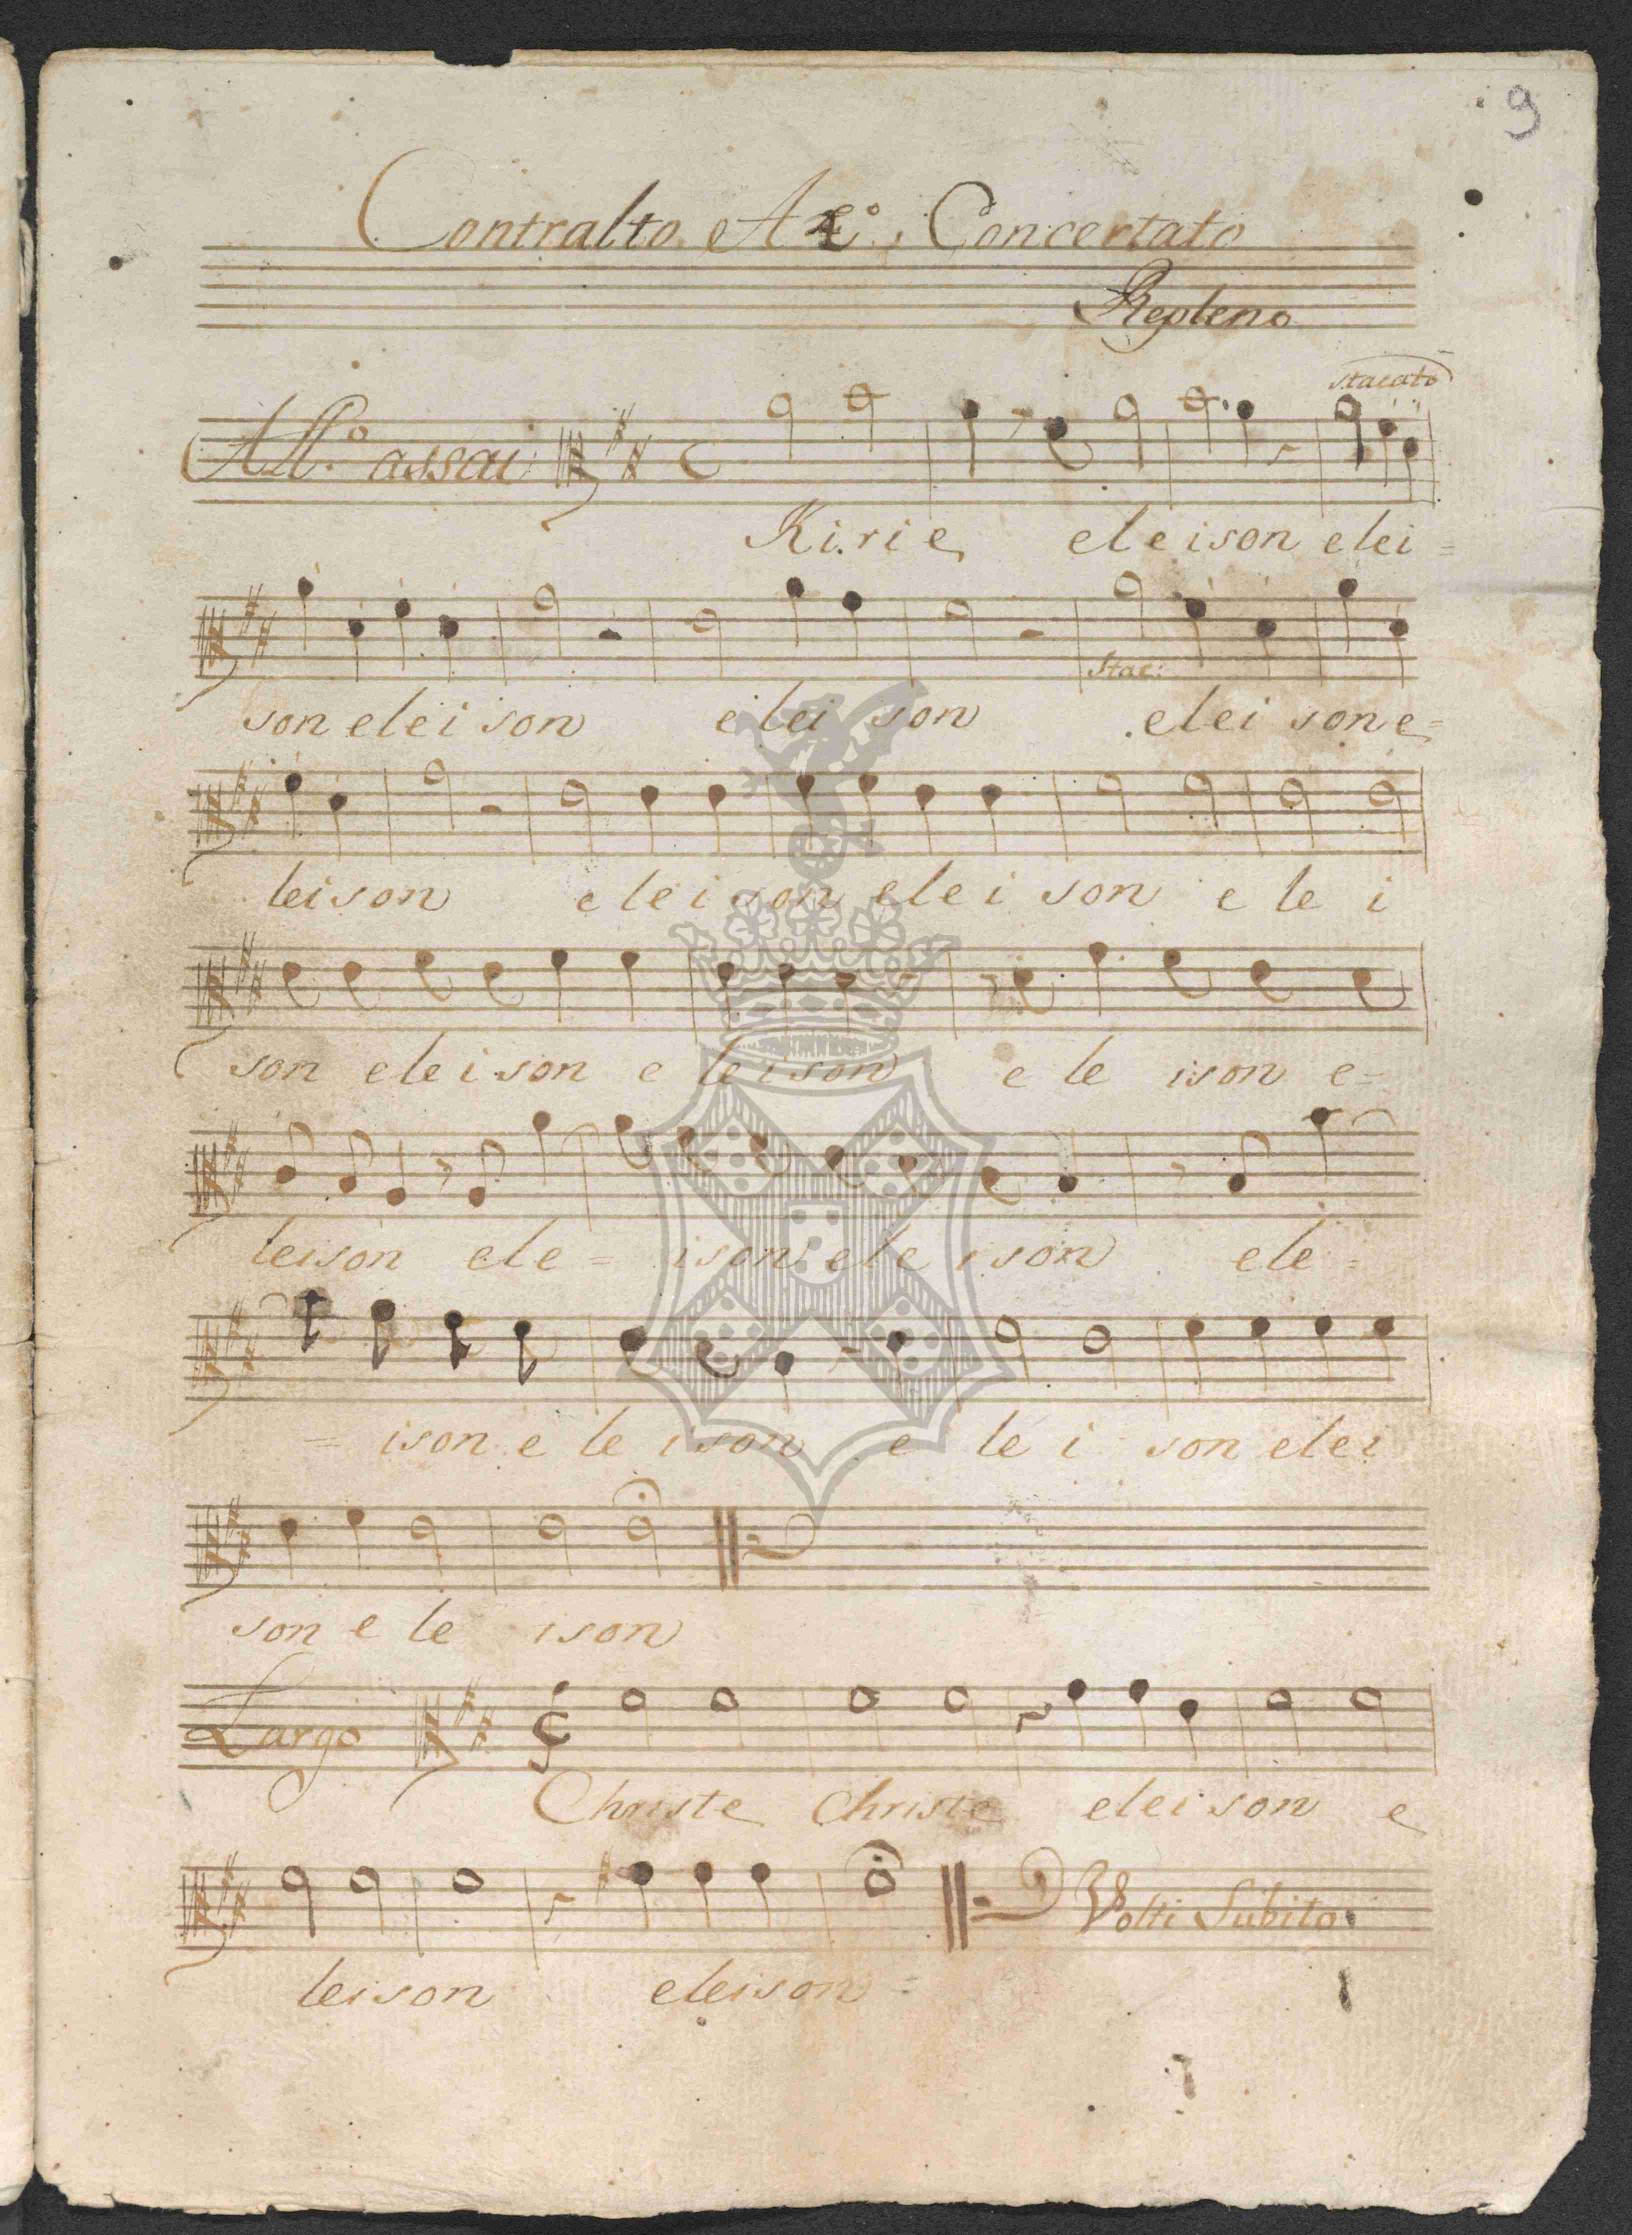 9
Contralto A 4.º Concertato
Repleno
stacato
All.º assai
Kirie eleison elei=
Stac:
son eleison elei son elei son e=
leison e le i son e le i son e le i
son e le i son e leison e le ison e=
leison ele= ison ele ison ele=
= ison e le ison e le i son elei
son e le ison
Largo
Christe Christe eleison e
Volti Subito.
leison eleison=